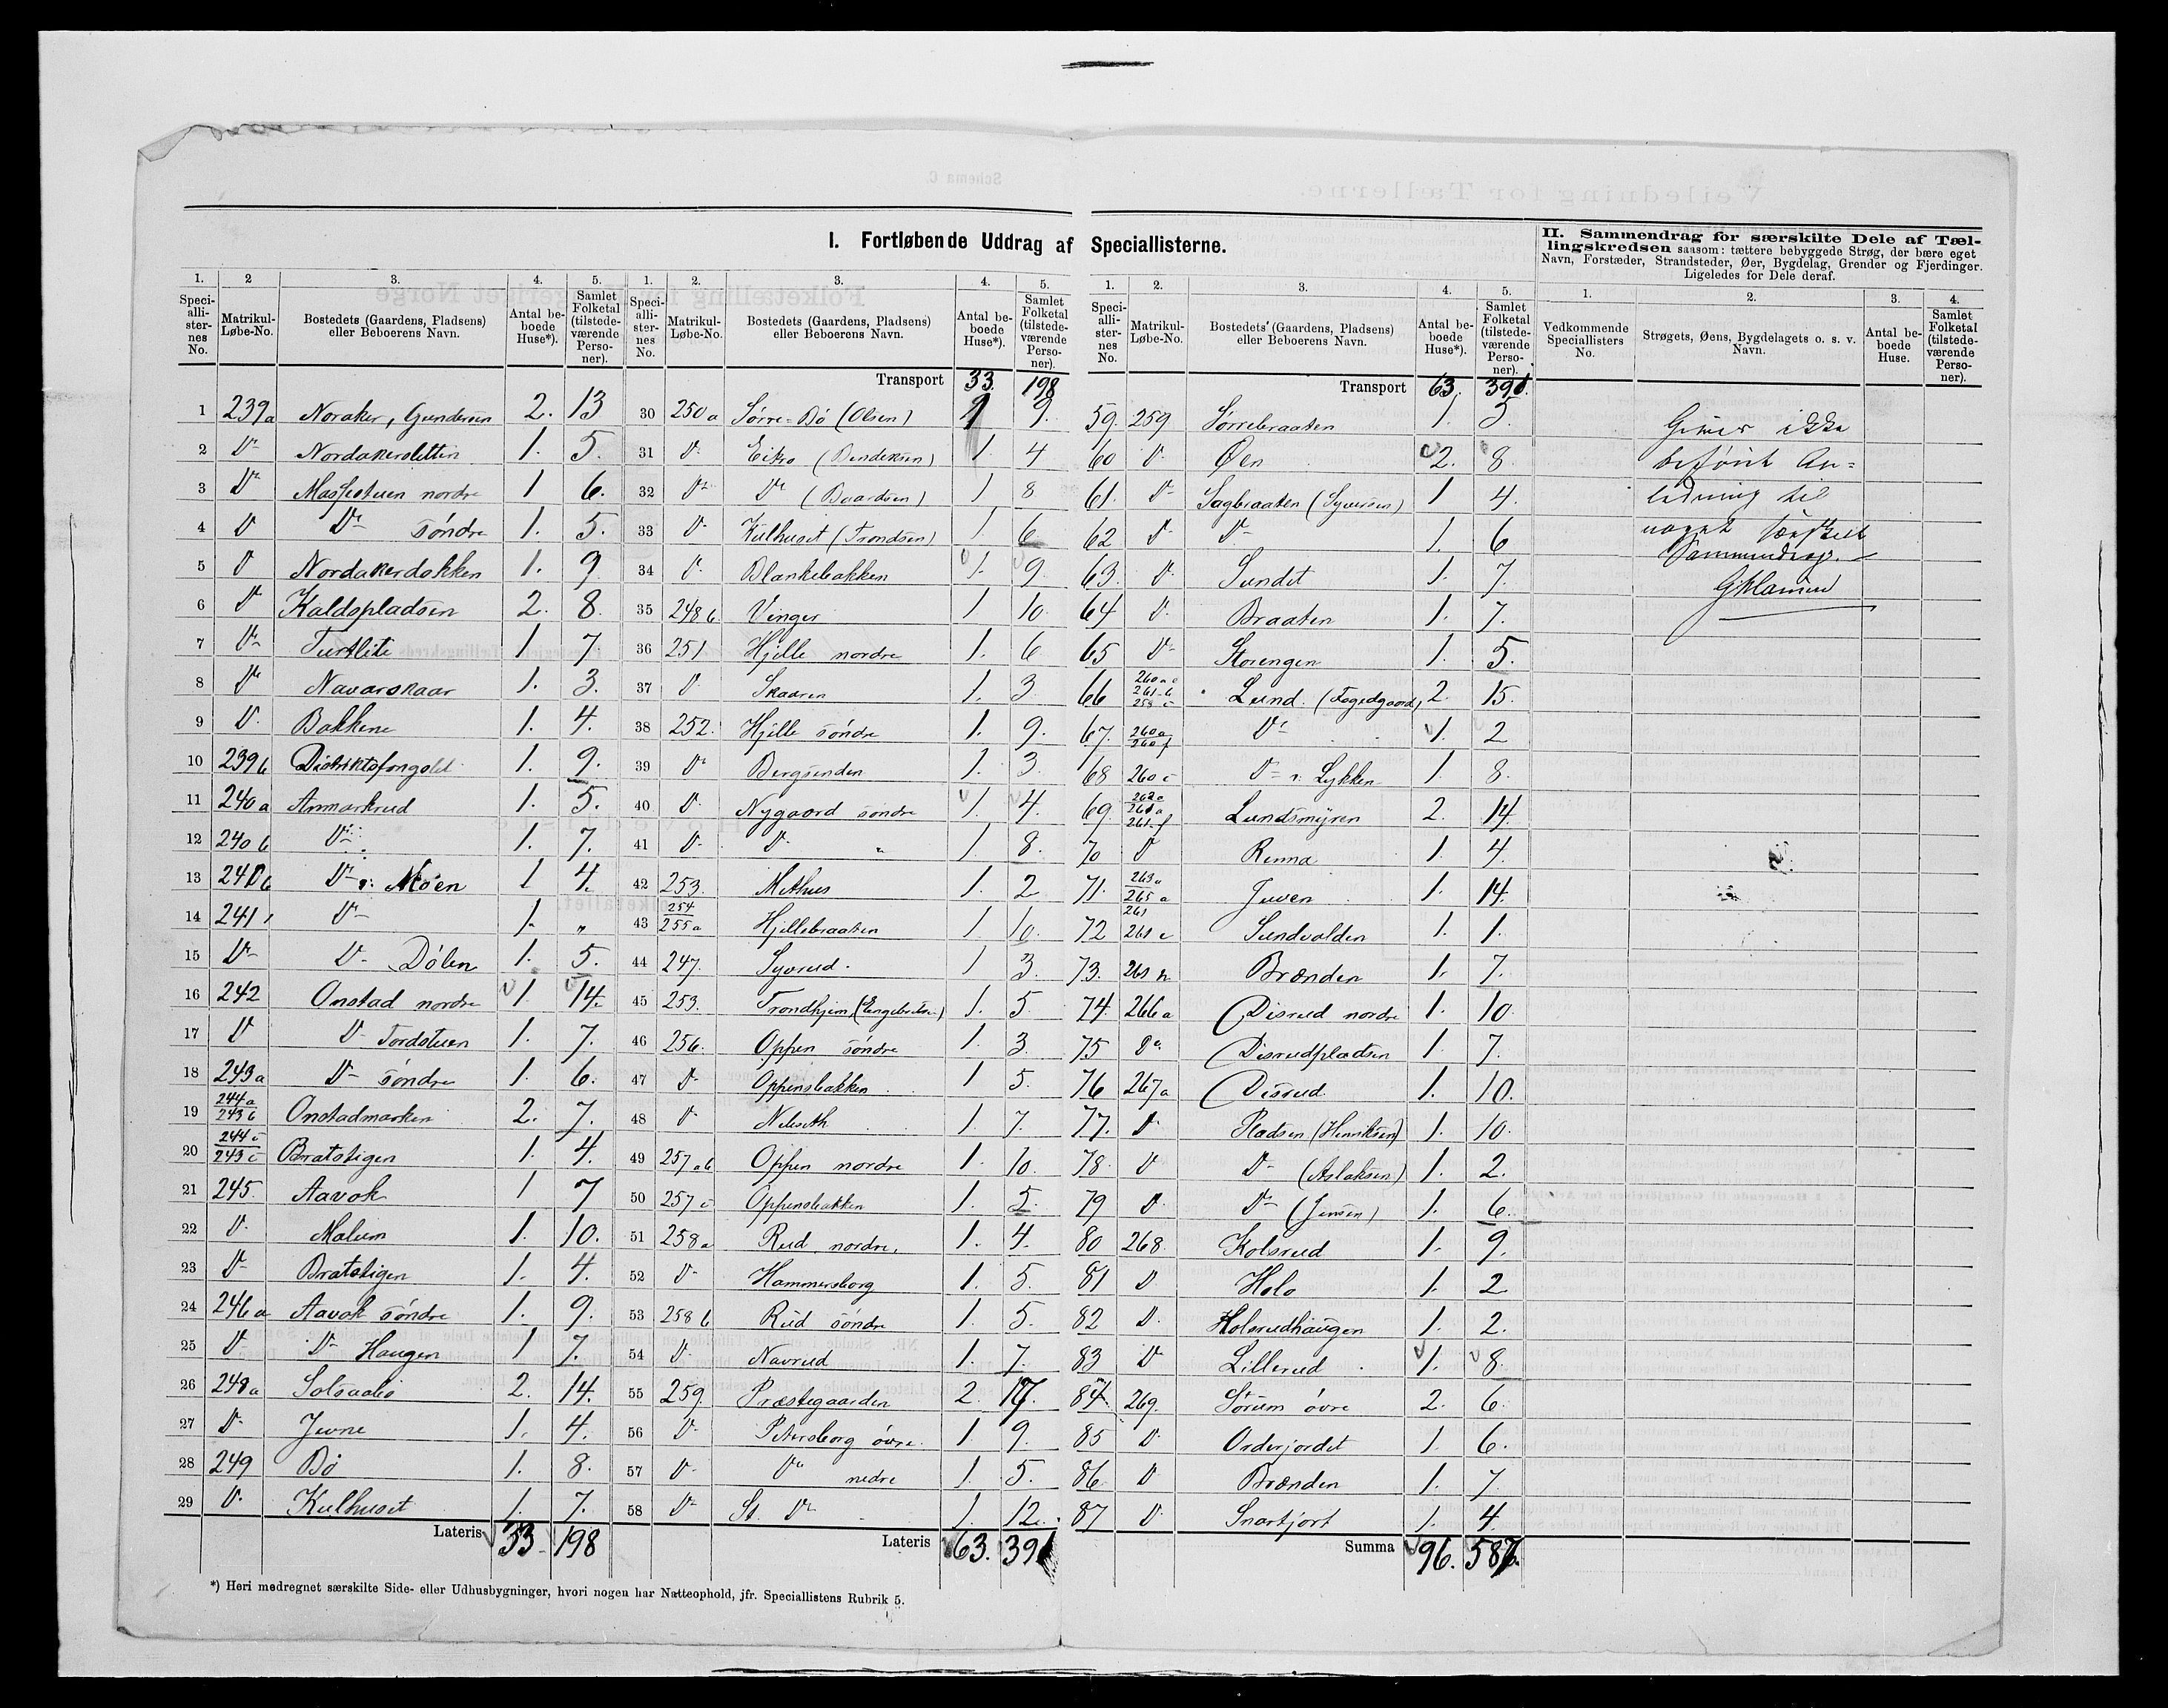 I. Fortløbende Uddrag af Speciallisterne.
1. 2 3. 4. 5.
Speciallisternes No. Matrikul-Løbe-No. Bostedets (Gaardens, Pladsens) eller Beboerens Navn. Antal beboede Huse*). Samlet Folketal (tilstedeværende Personer).
1 239a Noraker, Gundersen 2. 13
2 Do Nordakersletten 1. 5.
3 Do Massestuen nordre 1 6.
4 D Do søndre 1. 5.
5 D Nordakerdokken 1. 9
6 D Kaldspladsen 2. 8.
7 Do Turtlite 1 7
8 Do Navarskaar 1. 3.
9 D. Bakkene 1. 4.
10 239b Distriktsfængslet 1. 9.
11 240a Anmarkrud 1. 5.
12 240b Do 1. 7.
13 240b Do v. Moen 1 4.
14 241 Do 1. "
15 Do D- Dølen 1. 5.
16 242 Onstad nordre 1. 14.
17 D D- Tordstuen 1. 7.
18 243a D- søndre 1. 6.
19 244a 243b Onstadmarken 2. 7.
20 244c 243c Bratstigen 1. 4.
21 245. Aavok 1 7
22 D. Malum 1. 10.
23 D- Bratstigen 1. 4.
24 246a Aavok søndre 1. 9.
25 D D- Haugen 1 7.
26 248a Solsaalø 2. 14.
27 D- Jevne 1. 4.
28 249 Bø 1. 8.
29 D. Kulhuset 1. 7.
Lateris 33 198
1. 2. 3. 4. 5.
Speciallisternes No. Matrikul-Løbe-No. Bostedets (Gaardens, Pladsens) eller Beboerens Navn. Antal beboede Huse*). Samlet Folketal (tilstedeværende Personer).
Transport 33. 198
30 250a Sørre-Bø (Olsen) 1 9.
31 D. Eikro (Bendiksen) 1. 4
32 Do Do (Baardsen) 1 8
33 D- Kulhuset (Trondsen) 1. 6
34 D. Blankebakken 1. 9.
35 248b Vinger 1 10.
36 251 Hjelle nordre 1. 6
37 D. Skaaren 1. 3
38 252. Hjelle søndre 1. 9.
39 Do Bergsenden 1. 3.
40 D. Nygaard søndre 1. 4.
41 D- D- " 1 8.
42 253. Methus 1. 2
43 254 255a Hjellebraaten 1. 10.
44 247. Syvrud. 1 3.
45 253. Trondhjem, (Engebretsen) 1. 5.
46 256. Oppen søndre 1. 3.
47 D- Oppensbakken 1 5.
48 D. Nilseth 1. 7.
49 257ab Oppen nordre 1. 10.
50 257c Oppensbakken 1. 5.
51 258a Rud nordre, 1. 4.
52 D- Hammersborg 1. 5.
53 258b Rud søndre 1. 5.
54 D. Navrud 1. 7.
55 259. Præstegaarden 2. 17.
56 D- Petersborg øvre. 1. 9.
57 D- Do nedre 1. 5.
58 Do St. Do 1. 12.
Lateris 63. 391
1. 2. 3. 4. 5.
Speciallisternes No. Matrikul-Løbe-No. Bostedets (Gaardens, Pladsens) eller Beboerens Navn. Antal beboede Huse*). Samlet Folketal (tilstedeværende Personer).
Transport 63. 391.
59. 259 Sørrebraaten 1. 5.
60 D. Øen 2. 8.
61. D- Sagbraaten (Syversen) 1 4.
62 D- D- 1. 6
63. D. Sundet 1. 7.
64 D. Braaten 1. 7.
65 D- Storengen 1. 5.
66 Lund. (Fogedgaard) 2. 15.
67. 260a 260f Do 1. 2
68 260c D- v. Lykken 1. 8.
69. Lundsmyren 2. 14.
70 D Renna 1. 4.
71. 263a 265a Juven 1. 14.
72 261 261c Sundvolden 1. 1.
73. 261n Brænden 1. 7.
74. 266a Disrud nordre 1. 10.
75 Do Disrudpladsen 1. 7.
76 267a Disrud. 1. 10.
77. D. Pladsen (Henriksen) 1. 10.
78. D D- (Aslaksen) 1. 2.
79 D. D- (Jensen) 1. 6.
80 268. Kolsrud 1. 9.
81 D Holo 1. 2
82 D. Holsrudhaugen 1. 2.
83 D Lillerud 1. 8.
84 269. Sørum øvre 2. 6.
85 D. Orderjordet 1. 6.
86 D Brænden 1. 7
87 D. Snartjort 1. 4.
Summa 96. 587.
II. Sammendrag for særskilte Dele af Tællingskredsen saasom: tættere bebyggede Strøg, der bære eget Navn, Forstæder, Strandsteder, Øer, Bygdelag, Grender og Fjerdinger. Ligeledes for Dele deraf.
1. 2. 3. 4.
Vedkommende Speciallisters No. Strøgets, Øens, Bygdelagets o. s. v. Navn. Antal beboede Huse. Samlet Folketal (tilstedeværende Personer).
Giver ikke
beføiet An=
ledning til
noget særskilt
Sammendrag.
*) Heri medregnet særskilte Side- eller Udhusbygninger, hvori nogen har Natteophold, jfr. Speciallistens Rubrik 5.